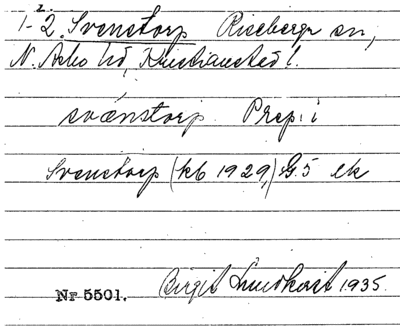 1-2. Svenstorp Riseberga sn,
N. Åsbo hd, Kristianstad l.
svänstorp. Prep: i
Svenstorp (kb 1929,) G.5 ek
Nr 5501. Birgit Lundkvist 1935.